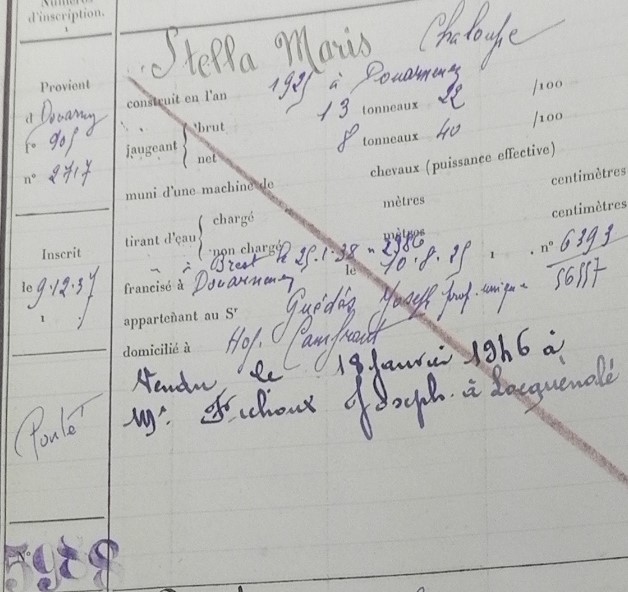 Numéros
d'inscription.
1
Provient
d Douarn
f° 905
n° 2717
Inscrit
le 9.12.37
Ponté
5988
Stella Maris Chaloupe
construit en l'an 1925 à Douarnenez
jaugeant { brut 13 tonneaux 22 /100
net 8 tonneaux 40 /100
muni d'une machine de chevaux (puissance effective)
tirant d'eau { chargé mètres centimètres
non chargé mètres centimètres
à Brest le 25.1.38 n° 2986
francisé à Douarnenez le 10.8.25, n° 6393
56557
appartenant au Sr Guédès Joseph prop. unique
domicilié à Hop. Camfrout
Vendu le 18 Janvier 1946 à
Mr. Joseph à Locquénolé